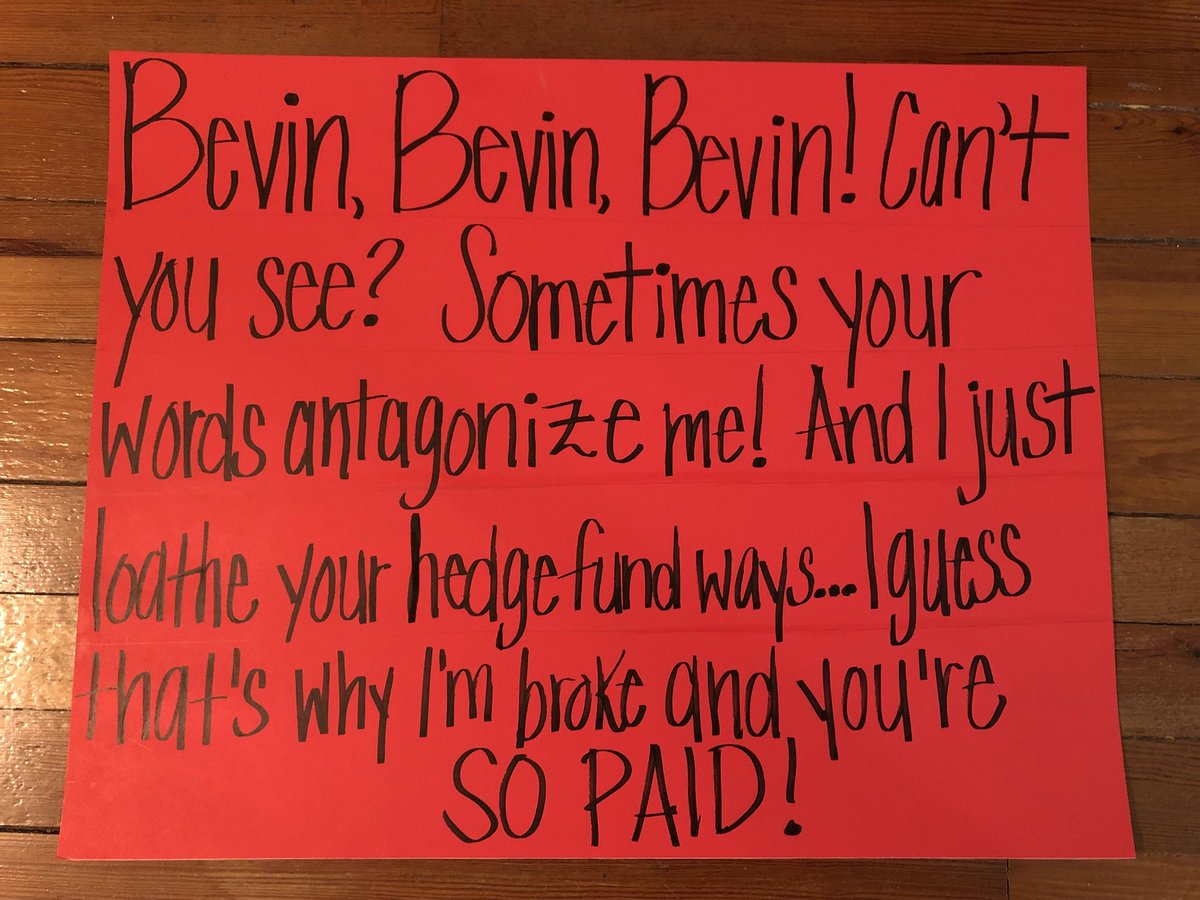 Bevin, Bevin, Bevin! Can't
you see? Sometimes your
words antagonize me! And I just
loathe your hedge fund ways... I guess
that's why I'm broke and you're
SO PAID!